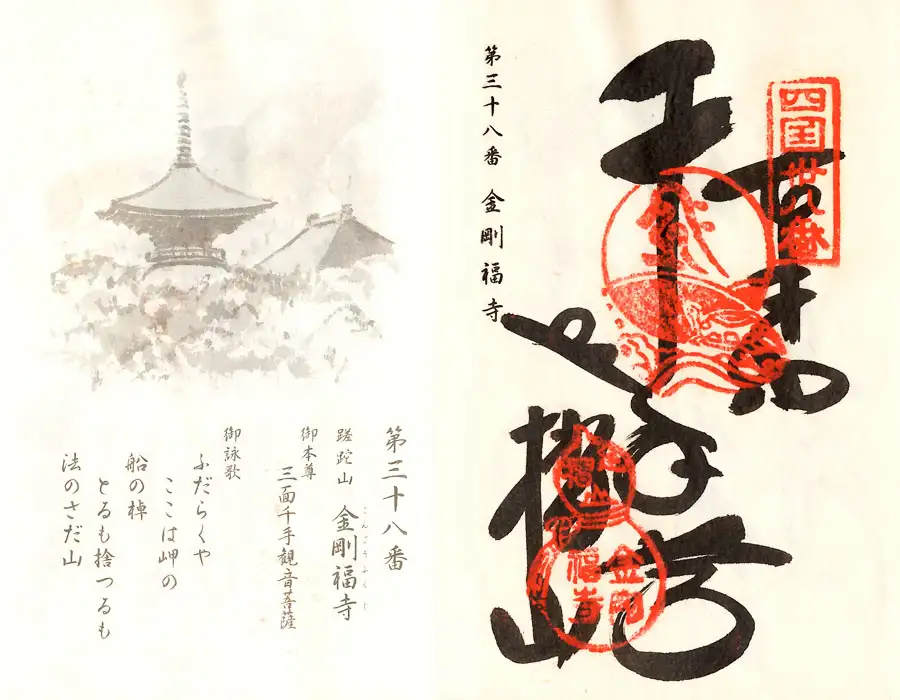 四国卅八番
金剛
福寺
第三十八番 金剛福寺
第三十八番
蹉跎山 金剛福寺
こんごうふくじ
御本尊
三面千手観音菩薩
御詠歌
ふだらくや
ここは岬の
船の棹
とるも捨つるも
法のさだ山